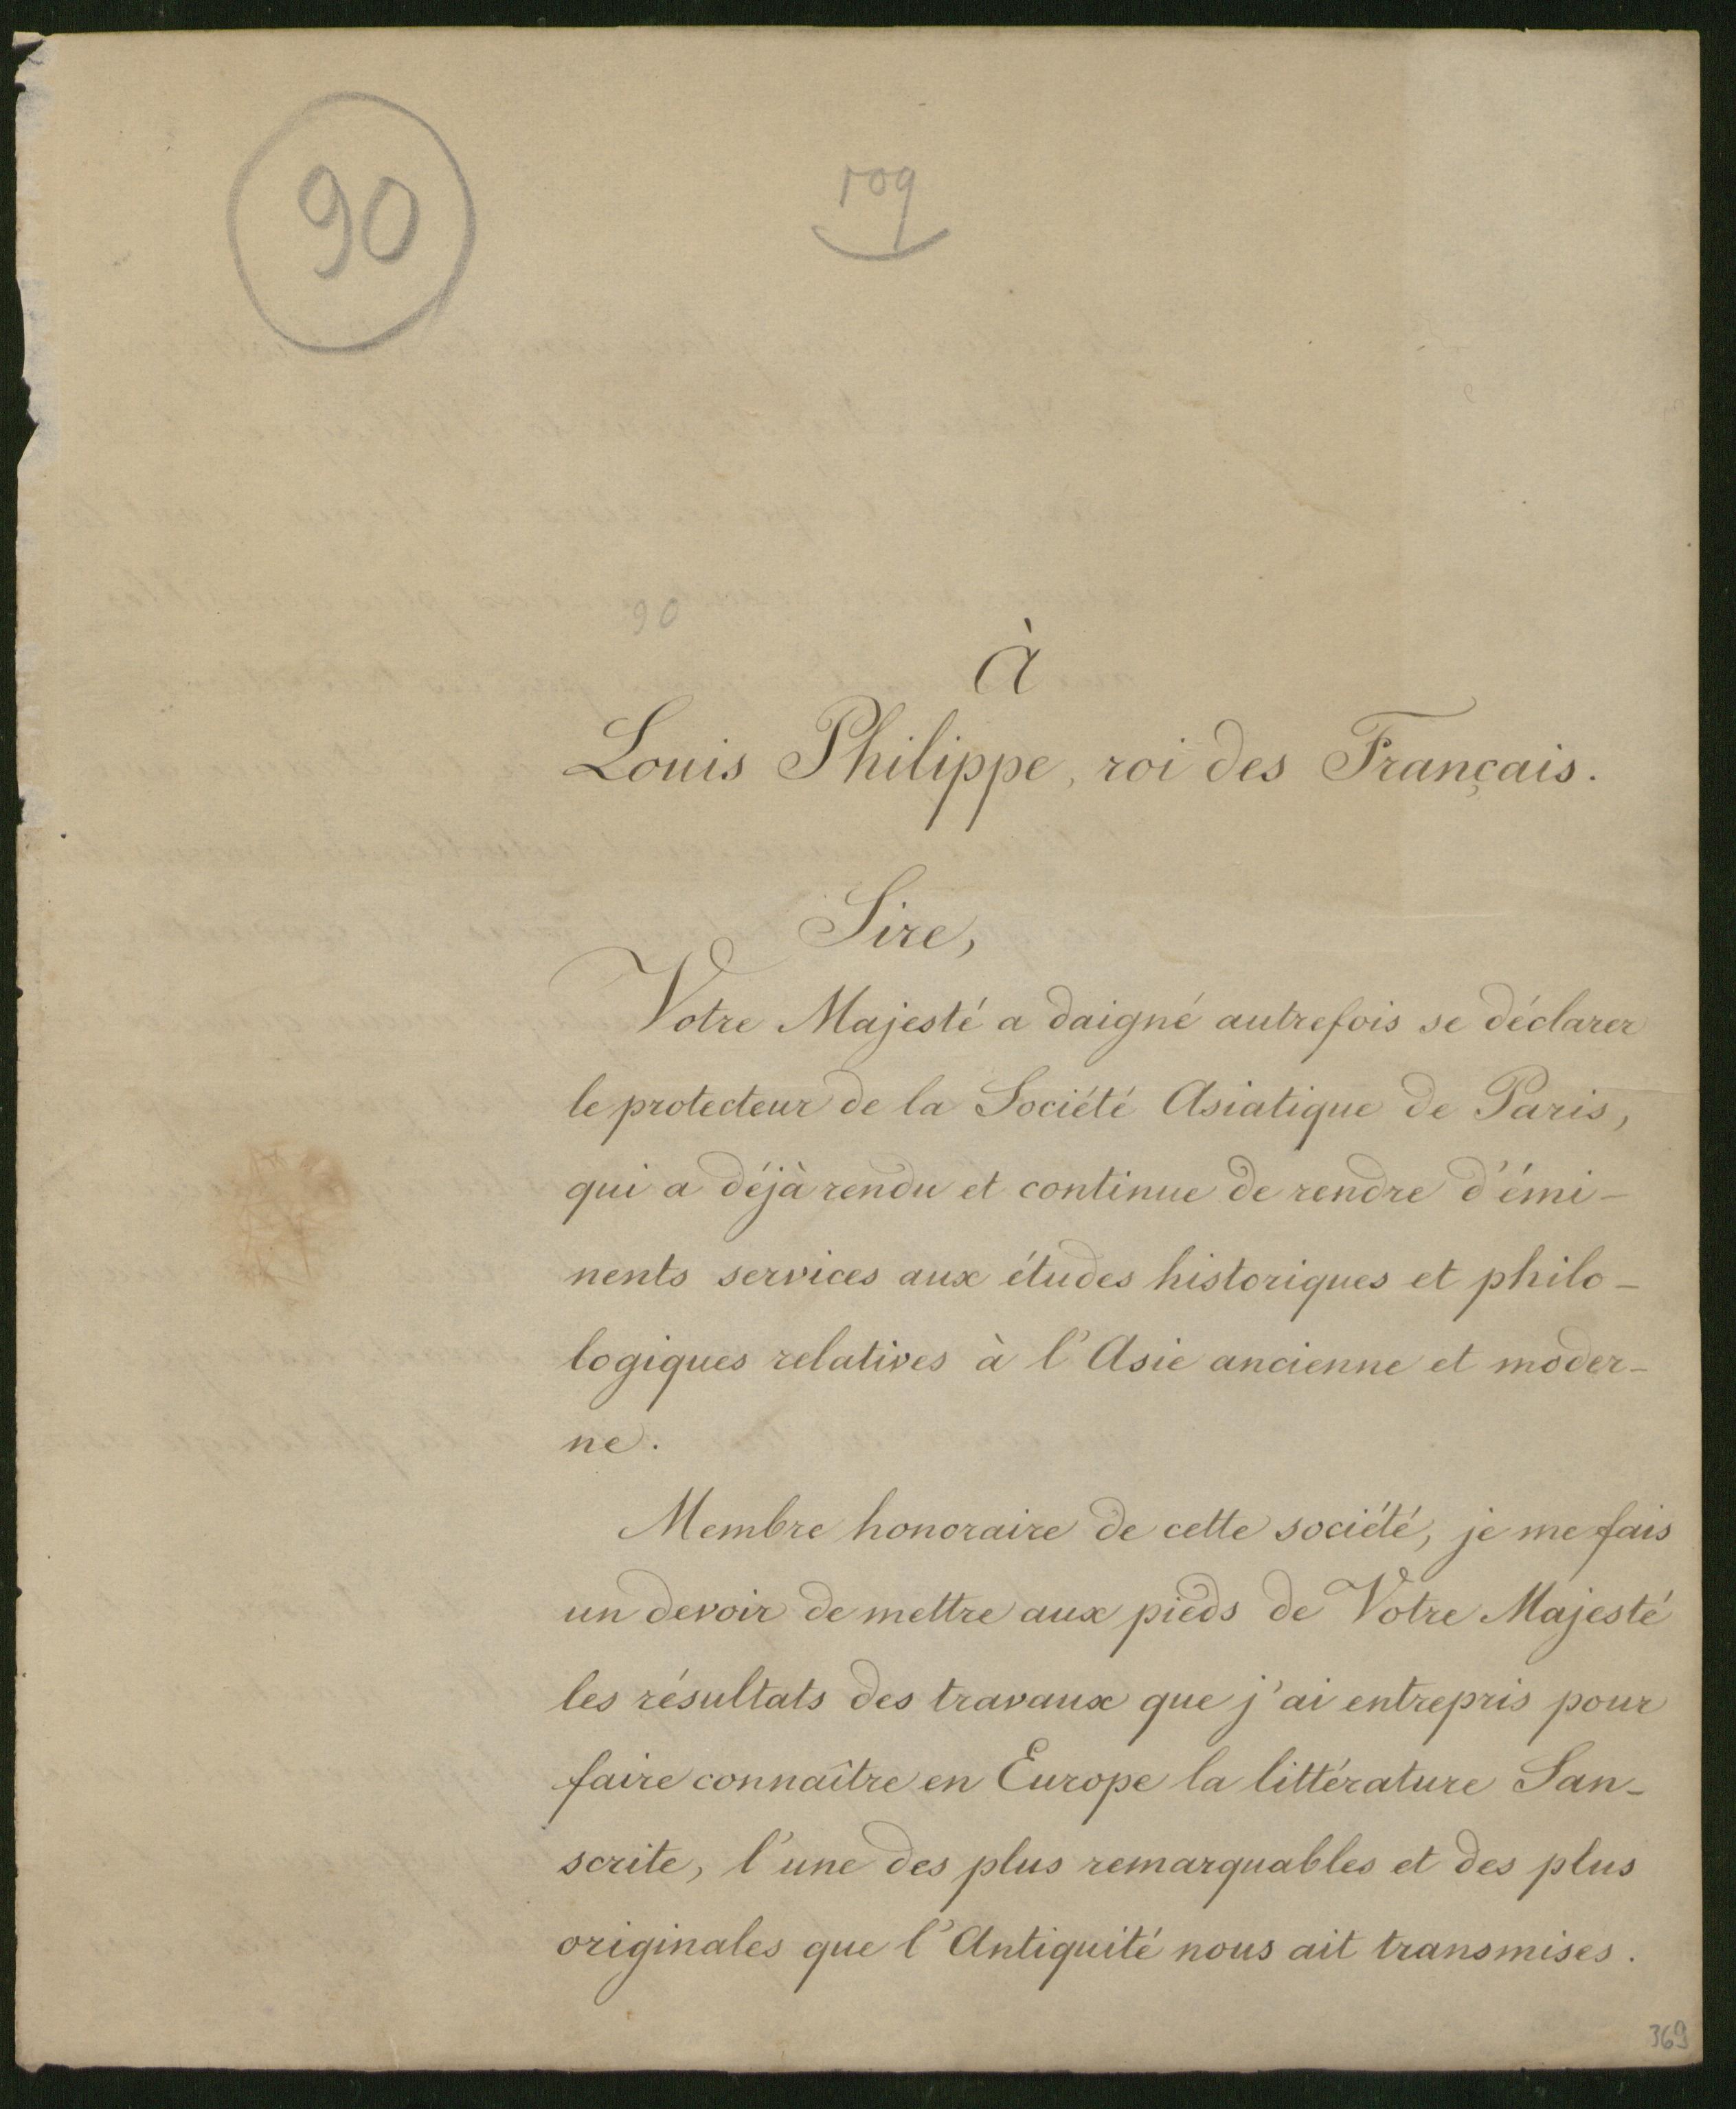 90
109
90
À
Louis Philippe, roi des Français.
Sire,
Votre Majesté a daigné autrefois se déclarer
le protecteur de la Société Asiatique de Paris,
qui a déjà rendu et continue de rendre d'émi-
nents services aux études historiques et philo-
logiques relatives à l'Asie ancienne et moder-
ne.
Membre honoraire de cette société, je me fais
un devoir de mettre aux pieds de Votre Majesté
les résultats des travaux que j'ai entrepris pour
faire connaître en Europe la littérature San-
scrite, l'une des plus remarquables et des plus
originales que l'Antiquité nous ait transmises.
369